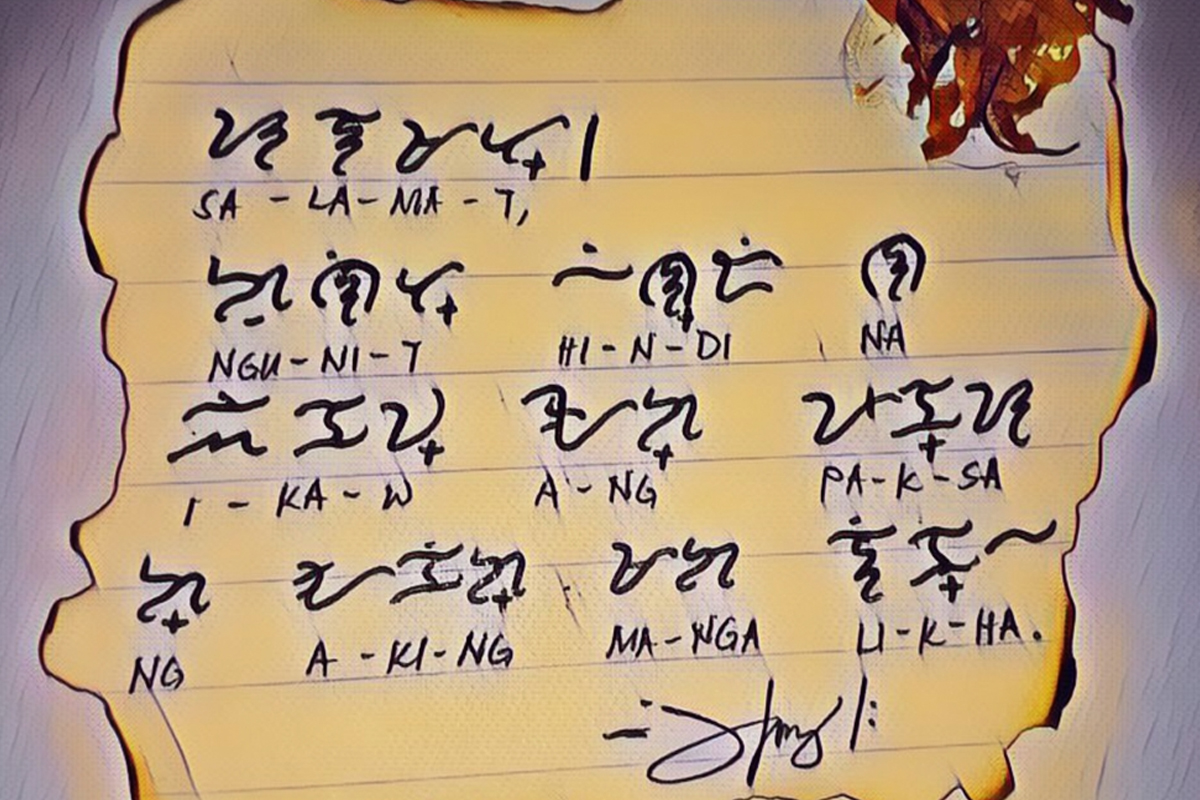 ᜐᜎᜋᜆ᜔᜵
SA - LA - MA - T,
ᜅᜓᜈᜒᜆ᜔ ᜑᜒᜈ᜔ᜇᜒ ᜈ
NGU - NI - T HI - N - DI NA
ᜁᜃᜏ᜔ ᜀᜅ᜔ ᜉᜃ᜔ᜐ
I - KA - W A - NG PA - K - SA
ᜅ᜔ ᜀᜃᜒᜅ᜔ ᜋᜅ ᜎᜒᜃ᜔ᜑ
NG A - KI - NG MA - NGA LI - K - HA.